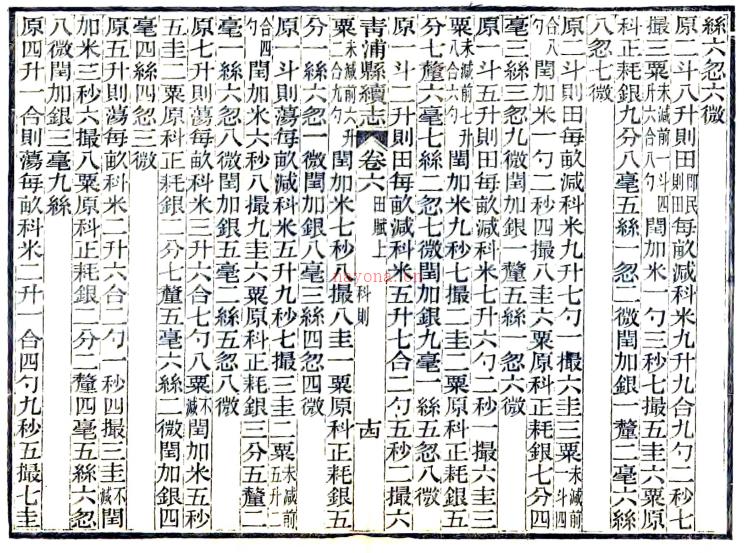 絲六忽六微
原二斗八升則田即民則田每畝減科米九升九合九勺二秒七
撮三粟未減前一斗四升六合八勺閏加米一勺三秒七撮五圭六粟原
科正耗銀九分八毫五絲一忽二微閏加銀一釐二毫六絲
八忽七微
原二斗則田每畝減科米九升七勺一撮六圭三粟未減前一斗四合八勺
閏加米一勺二秒四撮八圭六粟原科正耗銀七分四
毫三絲三忽九微閏加銀一釐五絲一忽六微
原一斗五升則田每畝減科米七升六勺二秒一撮六圭三
粟未減前七升八合六勺閏加米九秒七撮二圭二粟原科正耗銀五
分七釐六毫七絲二忽七微閏加銀九毫一絲五忽八微
原一斗二升則田每畝減科米五升七合二勺五秒二撮六
青浦縣續志 卷六 田賦上 科則 古
粟未減前六升二合九勺閏加米七秒五撮八圭一粟原科正耗銀五
分一絲六忽一微閏加銀八毫三絲四忽四微
原一斗則田每畝減科米五升九秒七撮三圭二粟未減前五升二合四勺
閏加米六秒八撮九圭六粟原科正耗銀三分五釐二
毫一絲六忽八微閏加銀五毫二絲五忽八微
原七升則蕩每畝科米三升六合七勺八粟不減閏加米五秒
五圭二粟原科正耗銀二分七釐五毫六絲二微閏加銀四
毫四絲四忽三微
原五升則蕩每畝科米二升六合二勺一秒四撮三圭不減閏
加米三秒六撮八粟原科正耗銀二分二釐四毫五絲六忽
八微閏加銀三毫九絲
原四升一合則蕩每畝科米二升一合四勺九秒五撮七圭